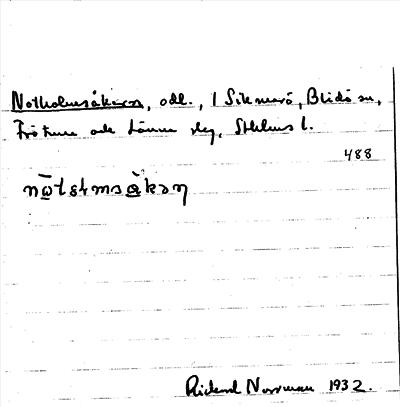 Notholmsåkern, odl., 1 Sikmarö, Blidö sn,
Frötuna och Länna slg, Sthlms l.
488
nω̄tsɦmsὰkəη
Rickard Norrman 1932.